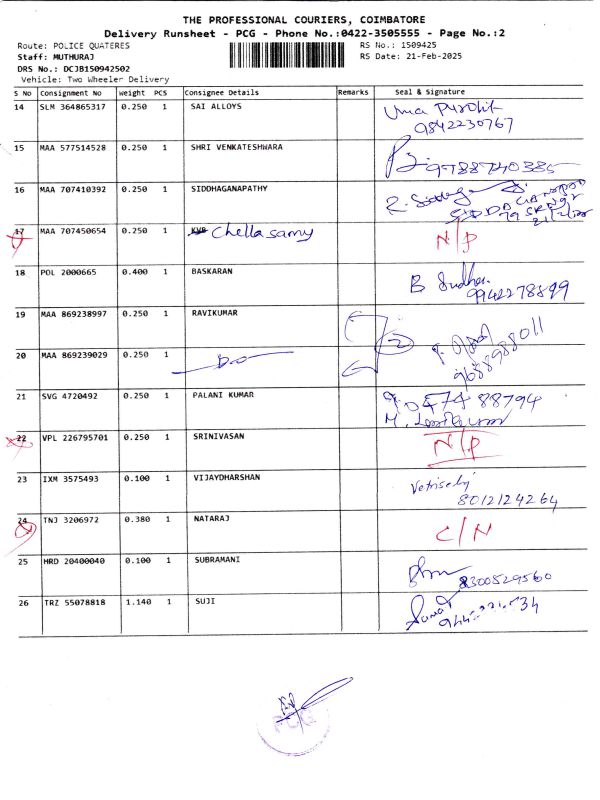 THE PROFESSIONAL COURIERS, COIMBATORE
Delivery Runsheet - PCG - Phone No.:0422-3505555 - Page No.:2
Route: POLICE QUATERES RS No.: 1509425
Staff: MUTHURAJ RS Date: 21-Feb-2025
DRS No.: DCJB150942502
Vehicle: Two Wheeler Delivery
S No Consignment No Weight PCS Consignee Details Remarks Seal & Signature
14 SLM 364865317 0.250 1 SAI ALLOYS Uma Purohit
9842230767
15 MAA 577514528 0.250 1 SHRI VENKATESHWARA 9788740385
16 MAA 707410392 0.250 1 SIDDHAGANAPATHY
17 MAA 707450654 0.250 1 KVB Chella samy N/P
18 POL 2000665 0.400 1 BASKARAN B Sudha
9942278899
19 MAA 869238997 0.250 1 RAVIKUMAR 2
9688988011
20 MAA 869239029 0.250 1 Do
21 SVG 4720492 0.250 1 PALANI KUMAR 90474 88794
22 VPL 226795701 0.250 1 SRINIVASAN N/P
23 IXM 3575493 0.100 1 VIJAYDHARSHAN Vetriselvi
8012124264
24 TNJ 3206972 0.380 1 NATARAJ C/N
25 HRD 20400040 0.100 1 SUBRAMANI 8300529560
26 TRZ 55078818 1.140 1 SUJI
PCG